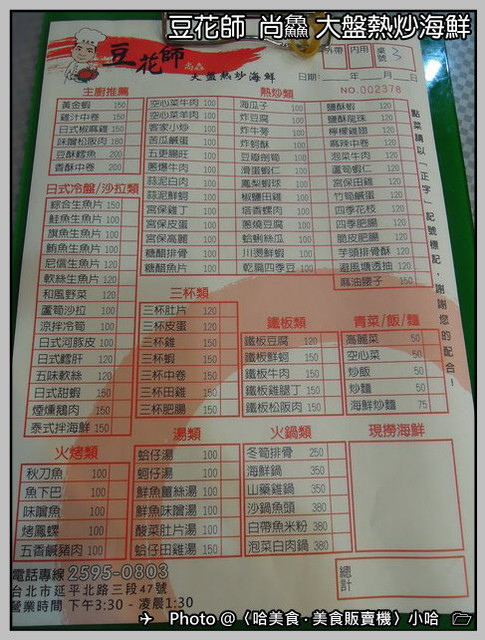 豆花師 尚鱻 大盤熱炒海鮮
豆花師
尚鱻
大盤熱炒海鮮
外帶 內用 桌號 3
日期: 年 月 日
NO.002378
點菜請以「正字」記號標記,謝謝您的配合!
主廚推薦
黃金蝦 150
雞汁中卷 150
日式椒麻雞 150
味噌松阪肉 180
豆酥鱈魚 200
香酥中卷 200
日式冷盤/沙拉類
綜合生魚片 150
鮭魚生魚片 100
旗魚生魚片 100
鮪魚生魚片 100
尼信生魚片 120
軟絲生魚片 120
和風野菜 120
蘆筍沙拉 100
涼拌冷筍 100
日式河豚皮 100
日式鱈肝 120
五味軟絲 120
日式甜蝦 150
煙燻鵝肉 150
泰式拌海鮮 150
火烤類
秋刀魚 100
魚下巴 100
味噌魚 100
烤鳳螺 100
五香鹹豬肉 100
熱炒類
空心菜牛肉 100
空心菜羊肉 100
客家小炒 100
苦瓜鹹蛋 100
五更腸旺 100
蔥爆牛肉 100
蒜泥白肉 100
蒜泥鮮蚵 100
宮保雞丁 100
宮保皮蛋 100
宮保高麗 100
糖醋排骨 100
糖醋魚片 100
海瓜子 100
炸豆腐 100
炸牛蒡 100
炸蚵酥 100
豆瓣劍筍 100
滑蛋蝦仁 100
鳳梨蝦球 100
椒鹽田雞 100
塔香螺肉 100
蔥燒豆腐 100
蛤蜊絲瓜 100
川燙鮮蝦 100
乾扁四季豆 100
鹽酥蝦 120
鹽酥龍珠 120
檸檬雞翅 120
麻辣中卷 120
泡菜牛肉 120
蘆筍蝦仁 120
宮保田雞 120
竹筍鹹蛋 120
四季花枝 120
四季肥腸 120
脆皮肥腸 120
芋頭排骨酥 120
避風塘透抽 120
麻油腰子 150
三杯類
三杯肚片 120
三杯皮蛋 120
三杯雞 150
三杯蝦 150
三杯中卷 150
三杯田雞 150
三杯肥腸 150
鐵板類
鐵板豆腐 120
鐵板鮮蚵 150
鐵板牛肉 150
鐵板雞腿丁 150
鐵板松阪肉 150
青菜/飯/麵
高麗菜 50
空心菜 50
炒飯 50
炒麵 50
海鮮炒麵 75
湯類
蛤仔湯 100
蚵仔湯 100
鮮魚薑絲湯 100
鮮魚味噌湯 100
酸菜肚片湯 100
蛤仔田雞湯 150
火鍋類
冬筍排骨 250
海鮮鍋 350
山藥雞鍋 350
沙鍋魚頭 380
白帶魚米粉 380
泡菜白肉鍋 380
現撈海鮮
總計
電話專線 2595-0803
台北市延平北路三段47號
營業時間 下午3:30 - 凌晨1:30
Photo @〈哈美食‧美食販賣機〉小哈